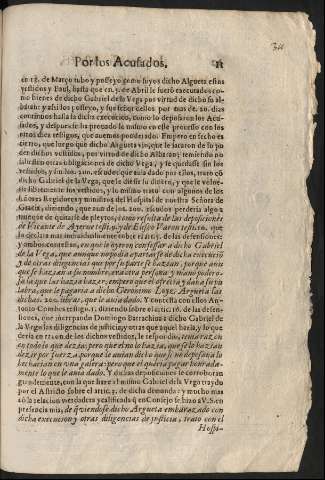 Por los Acusados.
en 13. de Março tubo y posseyo como suyos dicho Algueta essos
vestidos y Baul, hasta que en 3. de Abril le fuerō executados co-
mo bienes de dicho Gabriel de la Vega por virtud de dicho su al-
baran: y assi los posseyo, y fue señor dellos por mas de 20. dias
continuos hasta dicha execucion, como lo deposaron los Acu-
sados, y despues ha provado lo mismo en este processo con los
mesmos testigos, que avemos ponderado. Empero en fecho es
cierto, que luego que dicho Argueta vio, que le sacaron de su po-
der dichos vestidos, por virtud de dicho Albaran; temiendo no
saliessen otras obligaciones de dicho Vega, y se quedasse sin los
vestidos, y sin los 200. escudos que avia dado por ellos, trató cō
dicho Gabriel de la Vega, que le diesse su dinero, y que le volve-
ria libremente los vestidos, y lo mismo trató con algunos de los
señores Regidores y ministros del Hospital de nuestra Señora de
Gracia, diziendo, que aun de los 200. escudos perderia algo a
trueque de quitarse de pleytos, como resulta de las deposiciones
de Vicente de Ayerve test. 7. y de Eliseo Varon test. 11. que
las declaran mas individualmente sobre el art. 5. de las defensiones:
y ambos contestan, en que le oyeron confessar a dicho Gabriel
de la Vega, que aunque no podia apartarse de dicha execucio
y de otras diligencias que por su parte se hazian; porque aun-
que se hazian a su nombre, era otra persona y mano podero-
sa la que las hazia hazer; empero que el ofrecia y daba su pa
labra, que le pagaria a dicho Geronimo Lope Argueta las
dichas 200. libras, que le avia dado. Y contesta con ellos An-
tonio Combes test. 1. diziendo sobre el art. 16. de las defen-
siones, que increpando Domingo Barrachina a dicho Gabriel de
la Vega las diligencias de justicia, y otras que aquel hazia, y lo que
devia en razon de los dichos vestidos, le respondió, tenia razon
en todo lo que dezia; pero que el no lo hazia, que se lo hazian
dezir por fuerza, porque le avian dicho que si no deposaba lo
hecharian en una galera: pero que el queria pagar honrada-
mente lo que le avia dado. Y dichas deposiciones se corroboran
grandemente, con la que haze el mismo Gabriel de la Vega traydo
por el Astricto sobre el artic. 2. de dicha demanda: y mucho mas
cō la relacion verdadera y calificada q̄ en Consejo se hizo a V.S. en
presencia mia, de q̄ viendose dicho Argueta embarazado con
dicha execucion y otras diligencias de justicia, trató con el
Hospi-